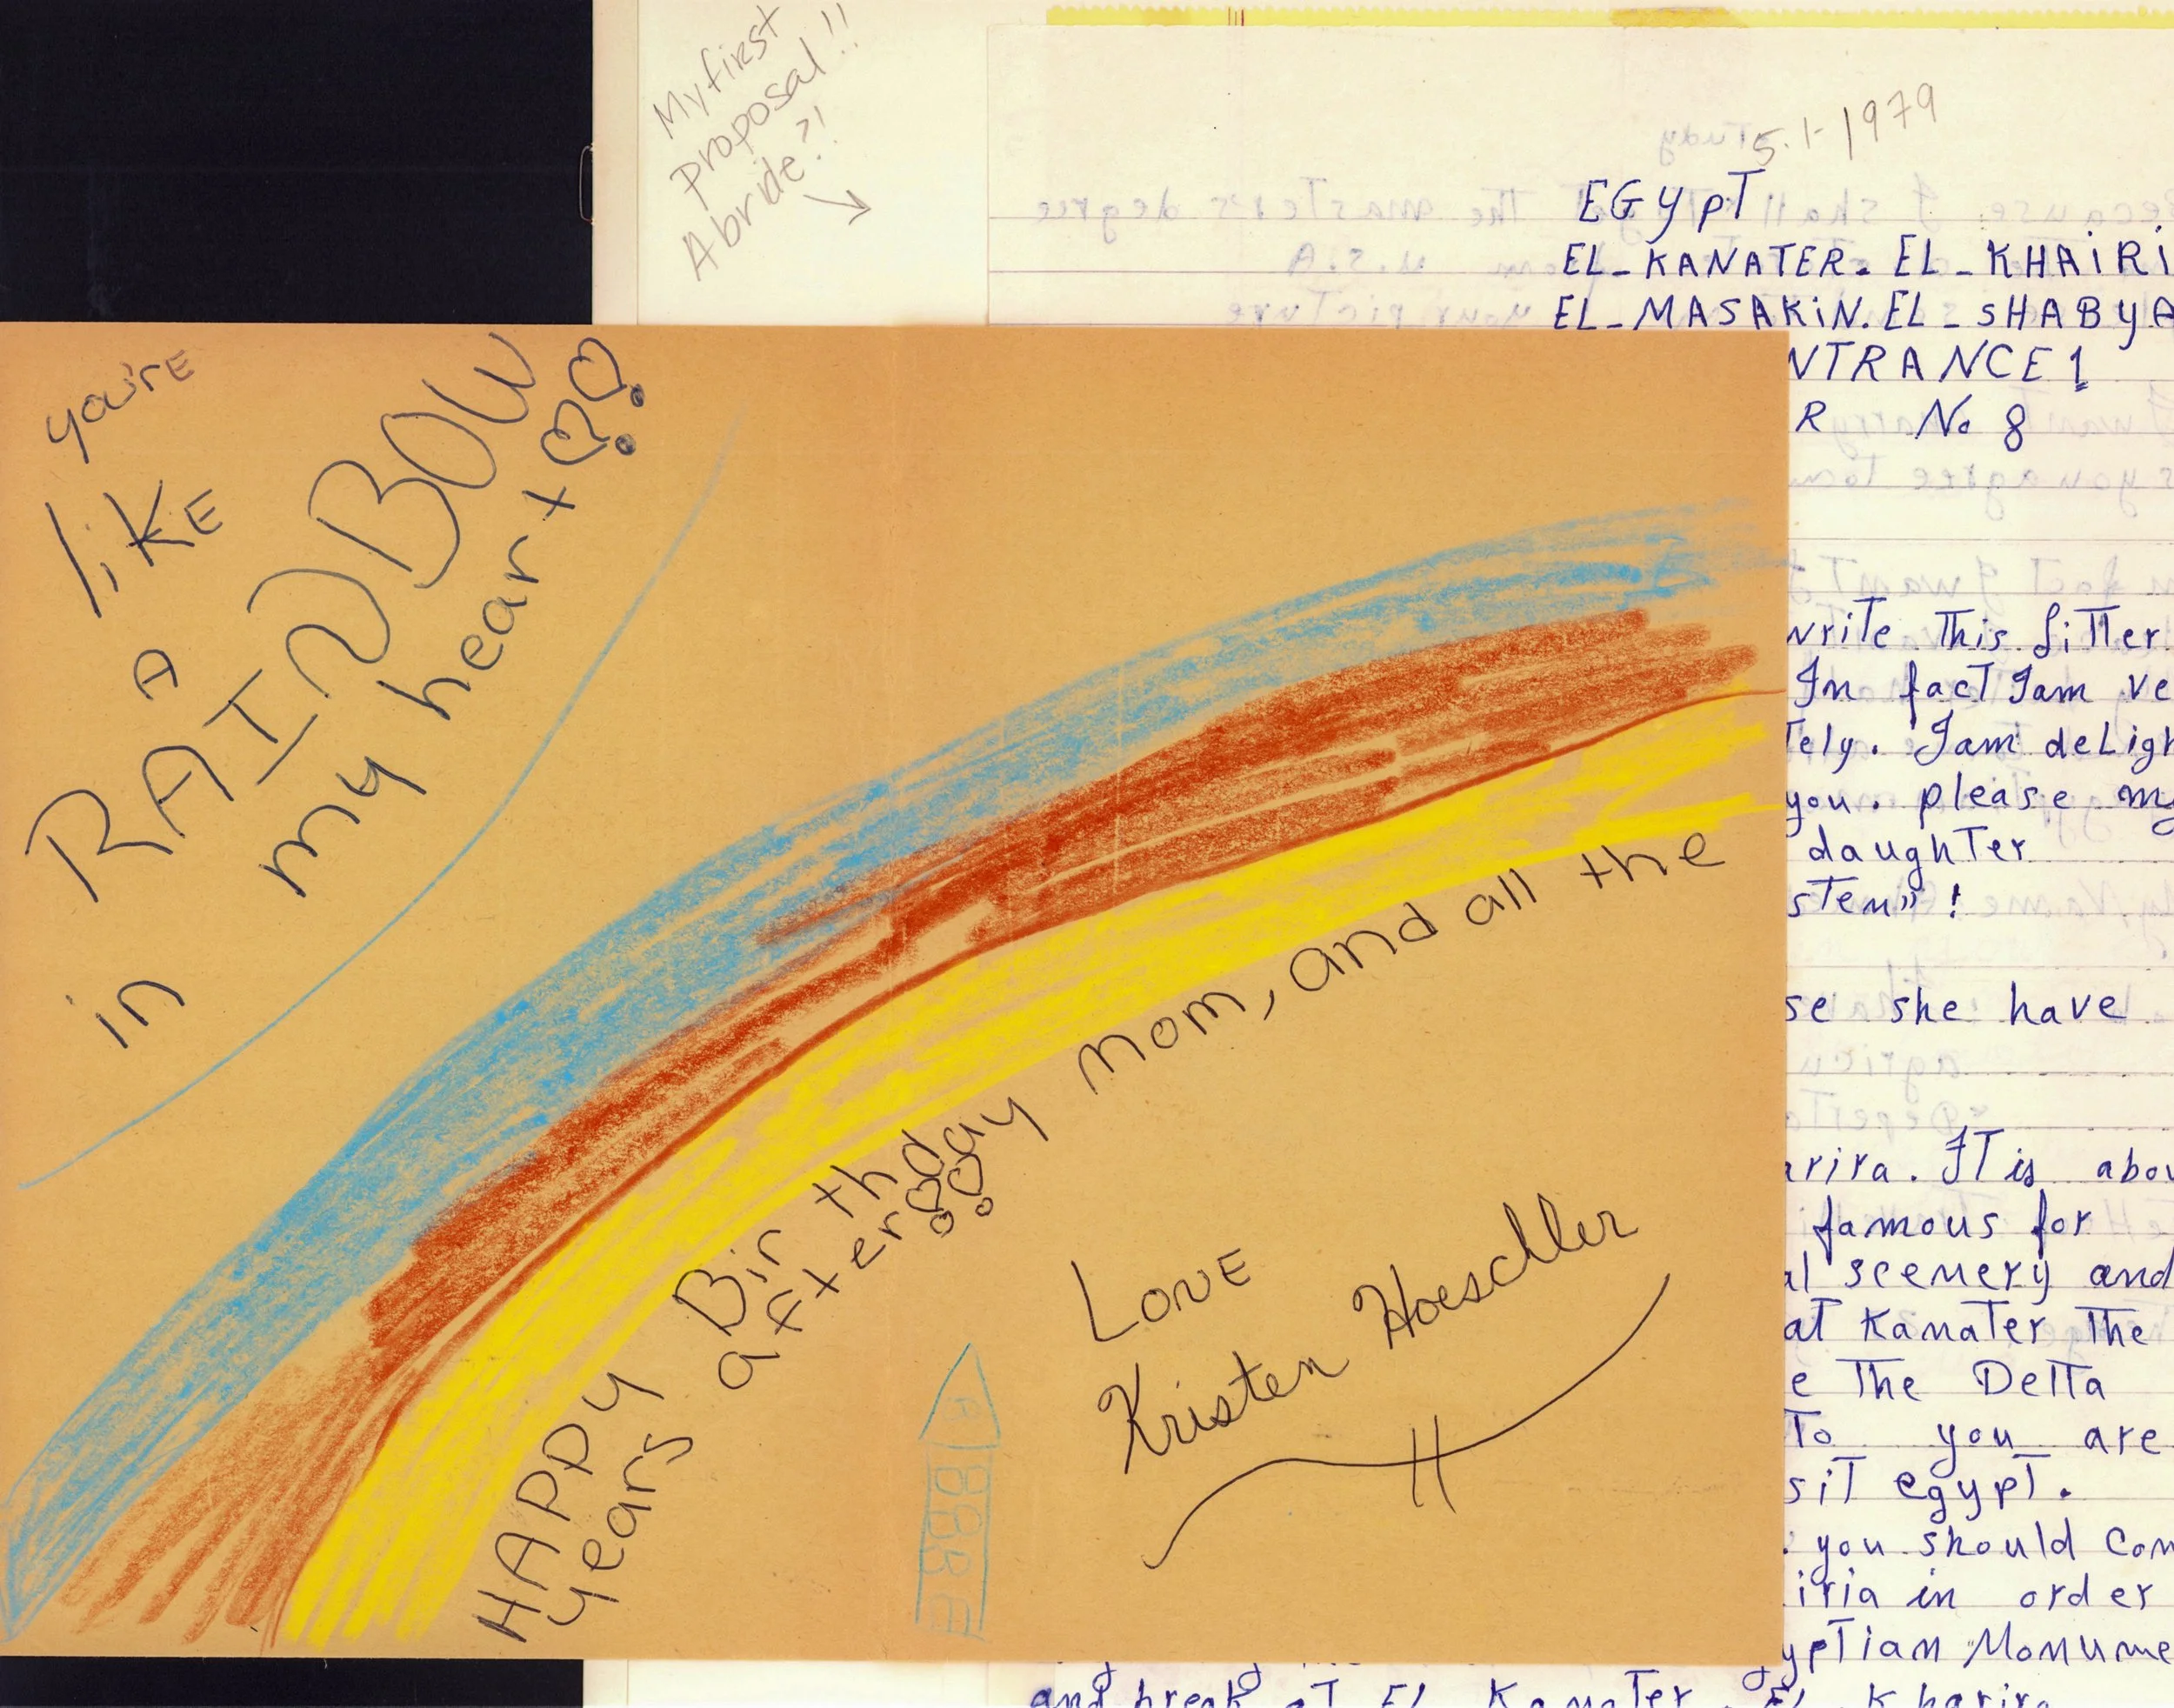 My first
proposal!!
A bride?!
5.1-1979
EGypT
EL_KANATER. EL_KHAiRi
EL_MASAKiN. EL_SHABYA
NTRANCE 1
R No 8
write This litter
In facT Iam ve
Tely. Iam deLigh
you. please my
daughTer
sTen" !
se she have
arira. IT is abou
famous for
al scenery and
aT KanaTer The
e The DelTa
To you are
siT egypT.
you should Com
iria in order
ypTian Monume
and break aT EL KanaTer. EL Kharira
you're
liKE
A
RAINBOW
in my heart!!
HAPPY Birthday mom, and all the
years after!!
LovE
Kristen Hoeschler